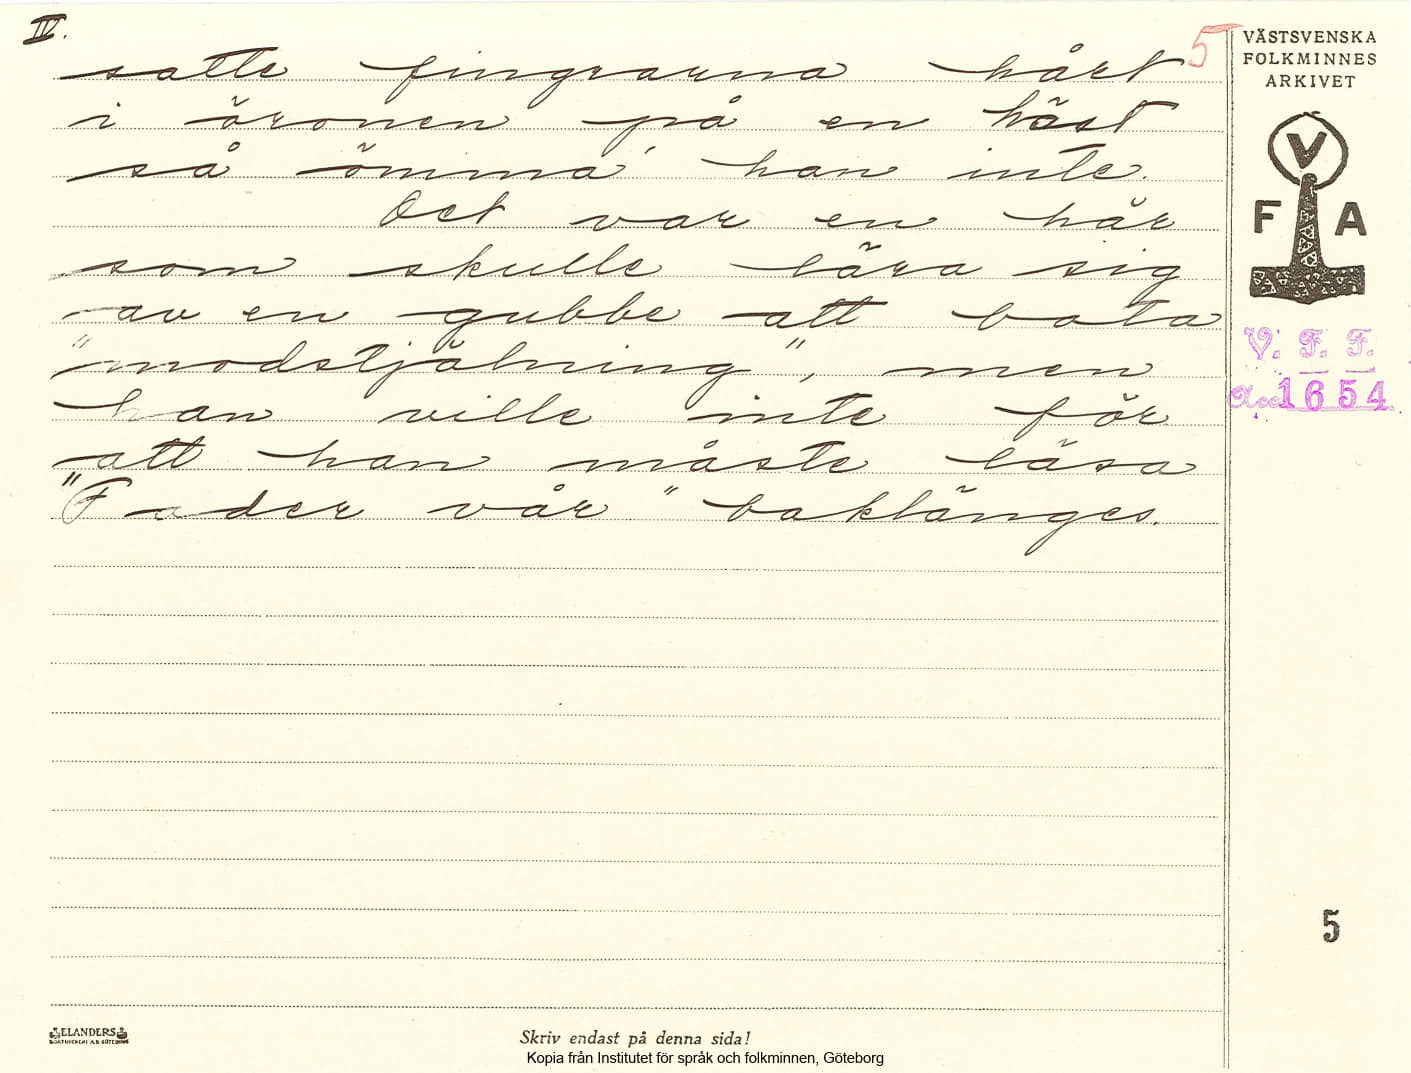 IV.
5
satte fingrarna hårt
i öronen på en häst
så ömma' han inte.
Det var en här
som skulle lära sig
av en gubbe att bota
"modstjälning", men
han ville inte för
att han måste läsa
"Fader vår" baklänges.
VÄSTSVENSKA
FOLKMINNES
ARKIVET
V
F A
V. F. F.
Acc 1654
5
ELANDERS
BOKTRYCKERI A.B. GÖTEBORG
Skriv endast på denna sida!
Kopia från Institutet för språk och folkminnen, Göteborg